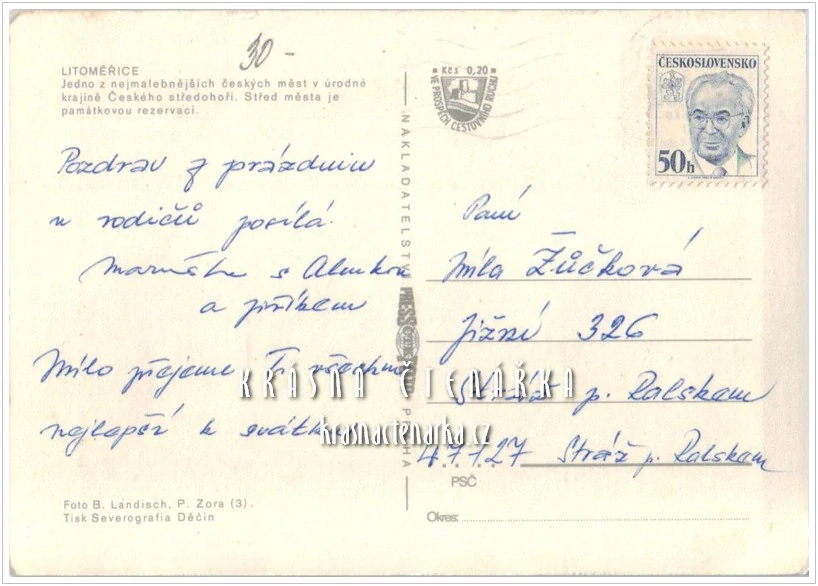 30-
LITOMĚŘICE
Jedno z nejmalebnějších českých měst v úrodné
krajině Českého středohoří. Střed města je
památkovou rezervací.
Pozdrav z prázdnin
u rodičů posílá
s Alenkou
a Jiříkem
Mílo přejeme Ti všechno
nejlepší k svátku
Foto B. Landisch, P. Zora (3).
Tisk Severografia Děčín
NAKLADATELSTVÍ PRESSFOTO PRAHA
Kčs 0,20
VE PROSPĚCH CESTOVNÍHO RUCHU
ČESKOSLOVENSKO
50h
Paní
Míla Žůčková
Jižní 326
Stráž p. Ralskem
47127 Stráž p. Ralskem
PSČ
Okres:
KRÁSNÁ ČTENÁŘKA
krasnactenarka.cz